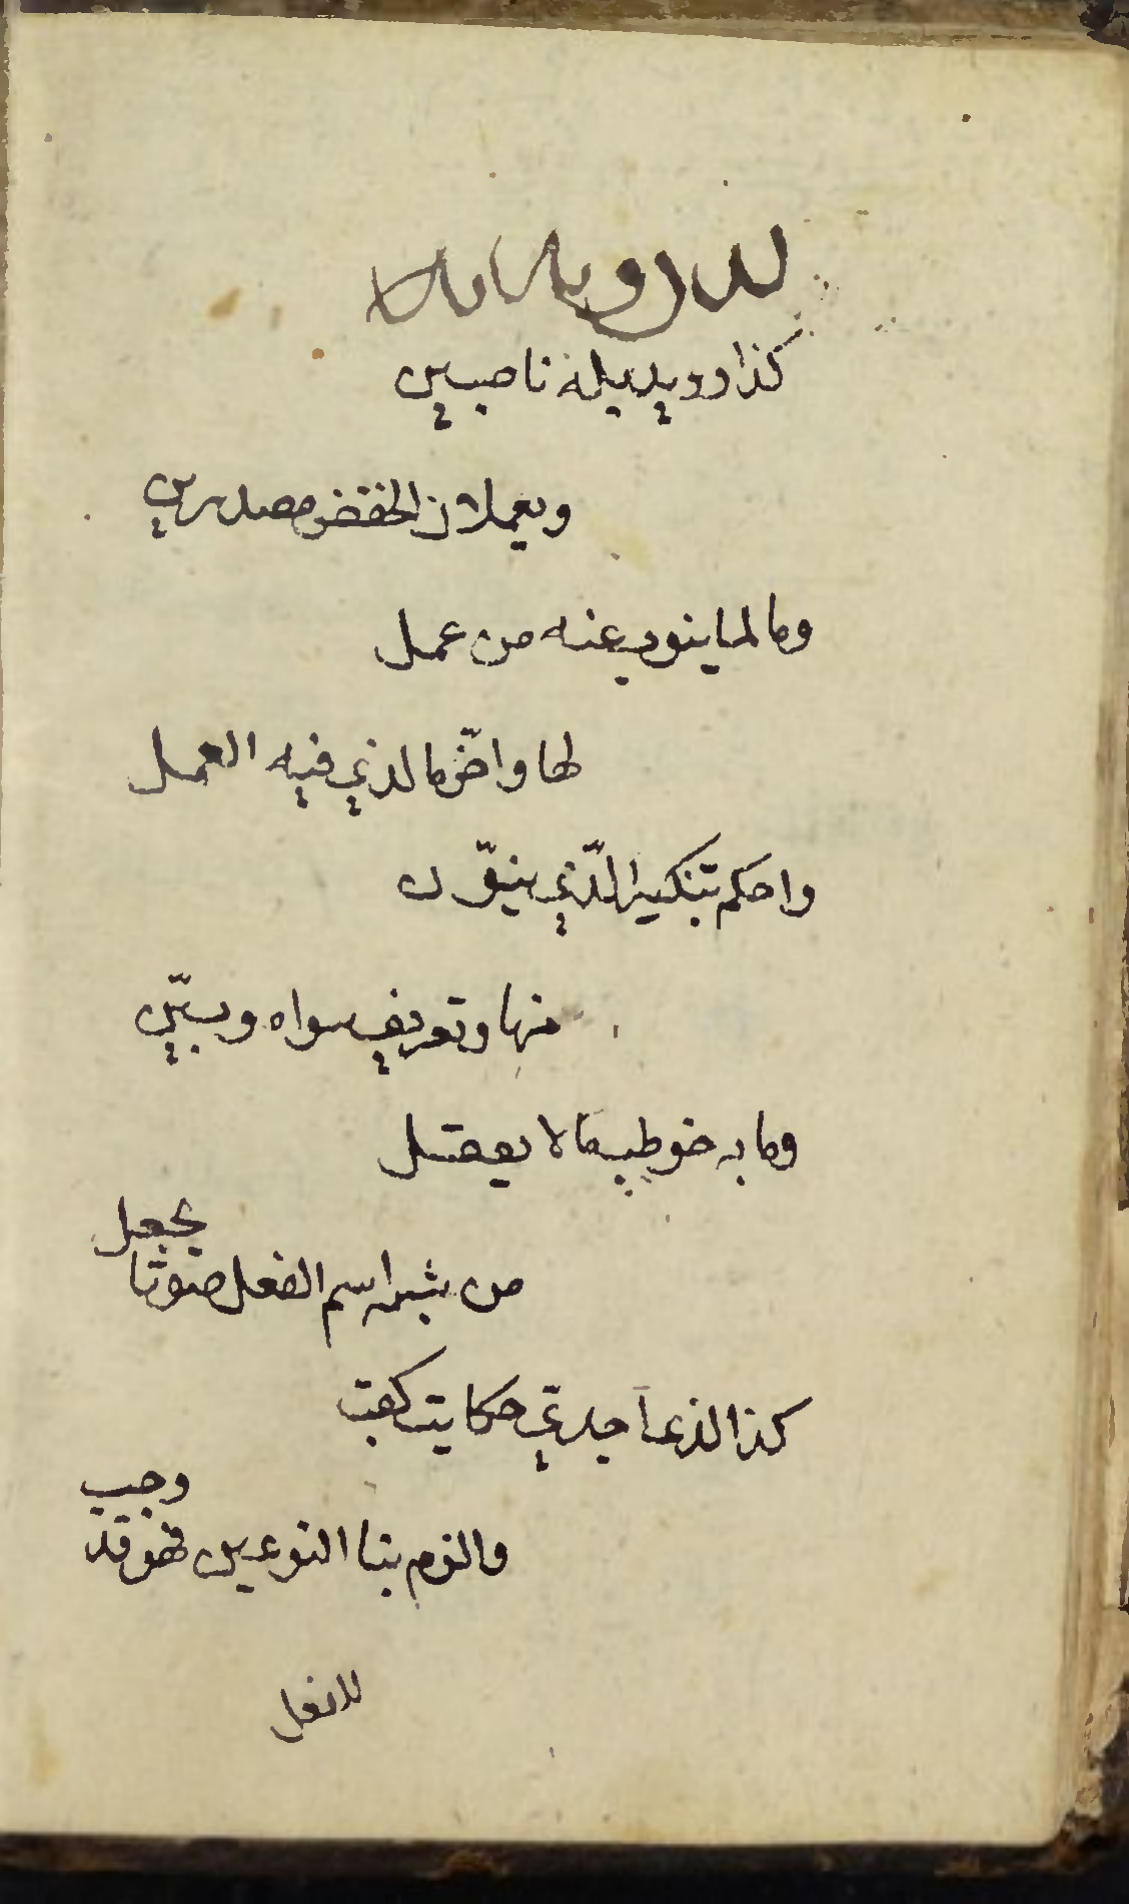 كذا رويد بله ناصبين
ويعملان الخفض مصدرين
وما لما ينوب عنه من عمل
لها واخر ما لذي فيه العمل
واحكم بتنكير الذي ينوّن
منها وتعريف سواه وبيّن
وما به خوطب ما لا يعقل
من شبه اسم الفعل صوتا يجعل
كذا الذي اجدي حكايت كقب
والزم بنا النوعين فهو قد وجب
للفعل